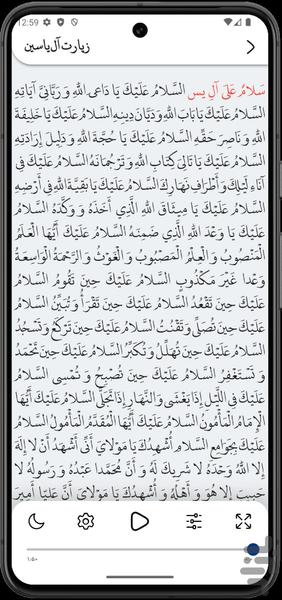 12:59
زیارت آل یاسین
سَلامُ عَلىٰ آلِ يس السَّلامُ عَلَيْكَ يَا دَاعِيَ اللَّهِ وَ رَبَّانِيَّ آيَاتِهِ
السَّلامُ عَلَيْكَ يَا بَابَ اللَّهِ وَ دَيَّانَ دِينِهِ السَّلامُ عَلَيْكَ يَا خَلِيفَةَ
اللَّهِ وَ نَاصِرَ حَقِّهِ السَّلامُ عَلَيْكَ يَا حُجَّةَ اللَّهِ وَ دَلِيلَ إِرَادَتِهِ
السَّلامُ عَلَيْكَ يَا تَالِيَ كِتَابِ اللَّهِ وَ تَرْجُمَانَهُ السَّلامُ عَلَيْكَ فِي
آنَاءِ لَيْلِكَ وَ أَطْرَافِ نَهَارِكَ السَّلامُ عَلَيْكَ يَا بَقِيَّةَ اللَّهِ فِي أَرْضِهِ
السَّلامُ عَلَيْكَ يَا مِيثَاقَ اللَّهِ الَّذِي أَخَذَهُ وَ وَكَّدَهُ السَّلامُ
عَلَيْكَ يَا وَعْدَ اللَّهِ الَّذِي ضَمِنَهُ السَّلامُ عَلَيْكَ أَيُّهَا الْعَلَمُ
الْمَنْصُوبُ وَ الْعِلْمُ الْمَصْبُوبُ وَ الْغَوْثُ وَ الرَّحْمَةُ الْوَاسِعَةُ
وَعْدا غَيْرَ مَكْذُوبٍ السَّلامُ عَلَيْكَ حِينَ تَقُومُ السَّلامُ
عَلَيْكَ حِينَ تَقْعُدُ السَّلامُ عَلَيْكَ حِينَ تَقْرَأُ وَ تُبَيِّنُ السَّلامُ
عَلَيْكَ حِينَ تُصَلِّي وَ تَقْنُتُ السَّلامُ عَلَيْكَ حِينَ تَرْكَعُ وَ تَسْجُدُ
السَّلامُ عَلَيْكَ حِينَ تُهَلِّلُ وَ تُكَبِّرُ السَّلامُ عَلَيْكَ حِينَ تَحْمَدُ
وَ تَسْتَغْفِرُ السَّلامُ عَلَيْكَ حِينَ تُصْبِحُ وَ تُمْسِي السَّلامُ
عَلَيْكَ فِي اللَّيْلِ إِذَا يَغْشَى وَ النَّهَارِ إِذَا تَجَلَّى السَّلامُ عَلَيْكَ أَيُّهَا
الْإِمَامُ الْمَأْمُونُ السَّلامُ عَلَيْكَ أَيُّهَا الْمُقَدَّمُ الْمَأْمُولُ السَّلامُ
عَلَيْكَ بِجَوَامِعِ السَّلامِ أُشْهِدُكَ يَا مَوْلايَ أَنِّي أَشْهَدُ أَنْ لا إِلَهَ
إِلا اللَّهُ وَحْدَهُ لا شَرِيكَ لَهُ وَ أَنَّ مُحَمَّدا عَبْدُهُ وَ رَسُولُهُ لا
حَبِيبَ إِلا هُوَ وَ أَهْلُهُ وَ أُشْهِدُكَ يَا مَوْلايَ أَنَّ عَلِيّا أَمِيرَ